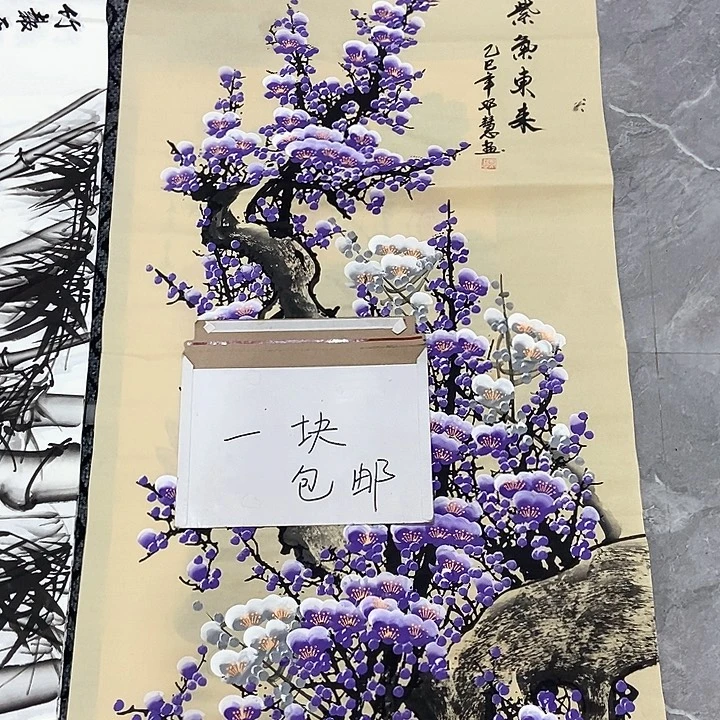 紫氣東来
乙巳年邓慧画
一块
包邮